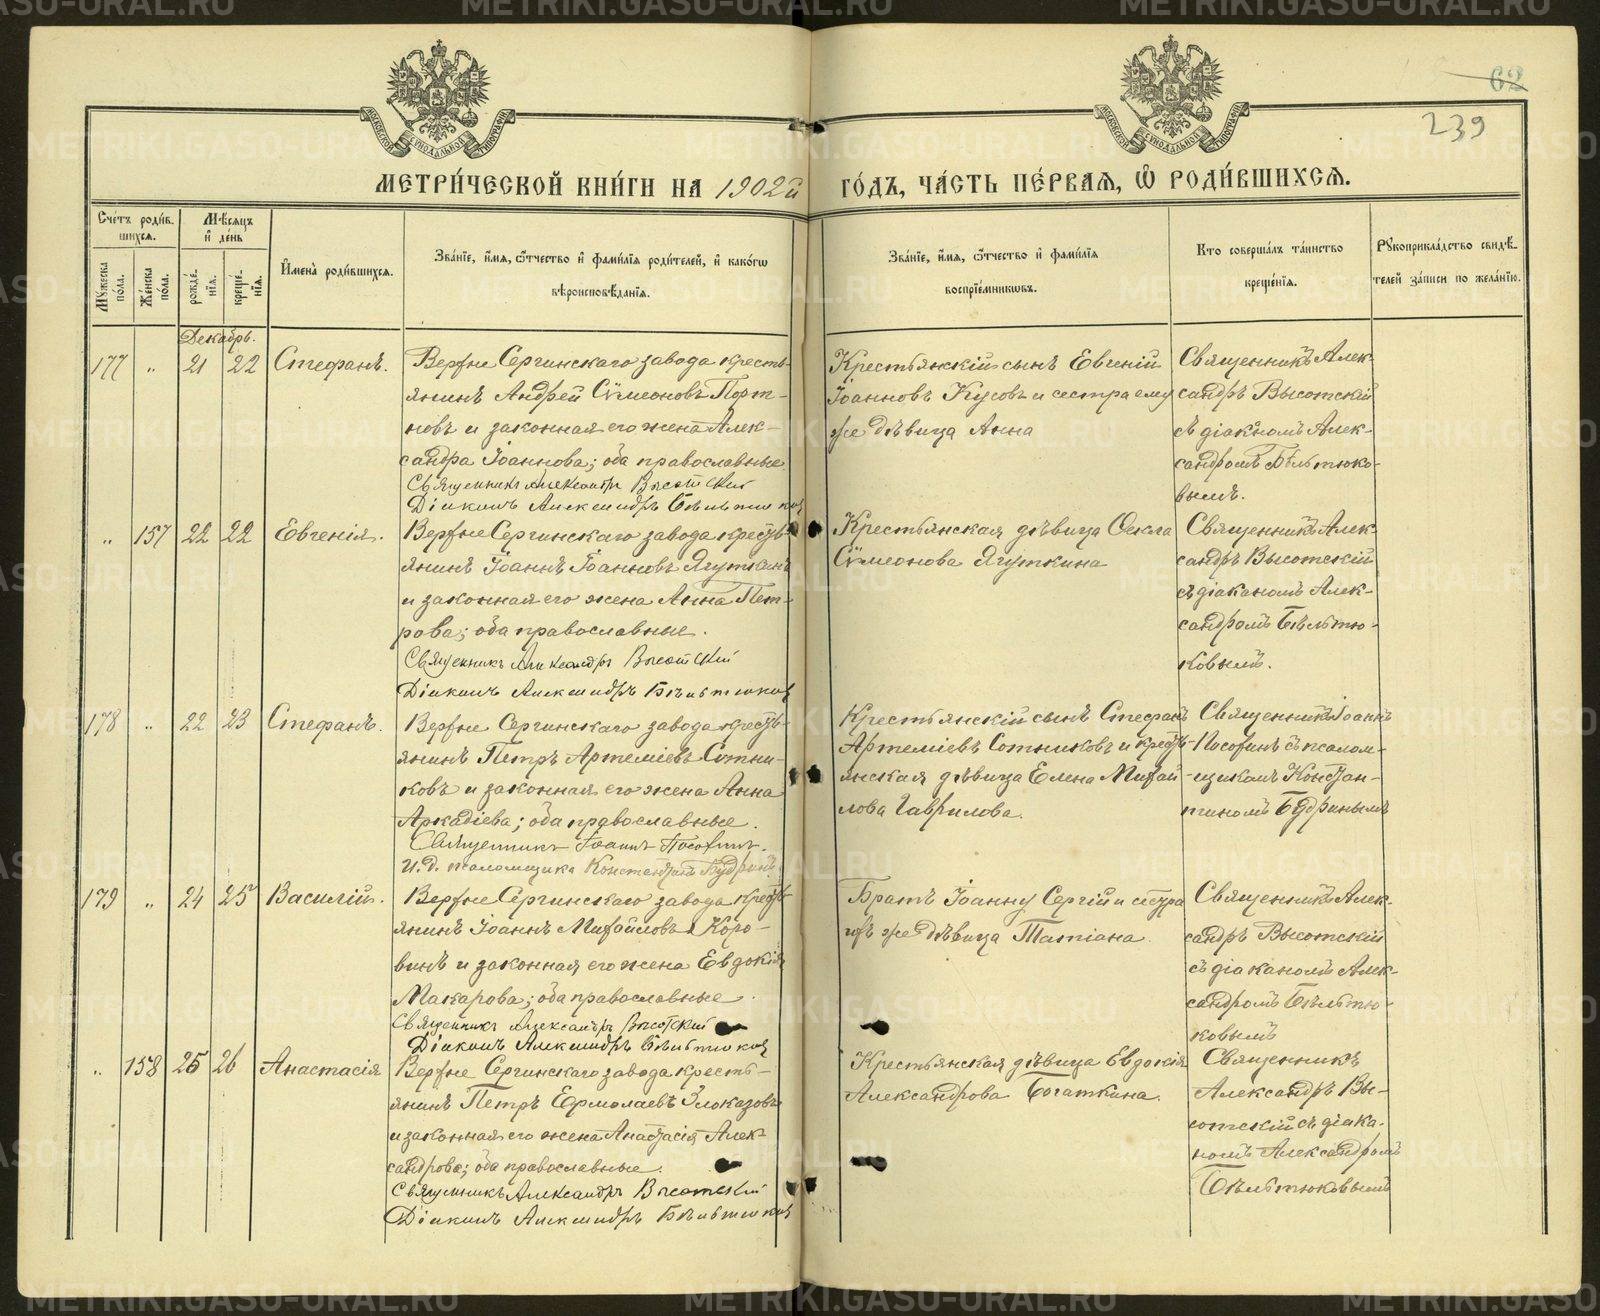 62
239
МЕТРИ́ЧЕСКОЙ КНИ́ГИ НА 1902й ГО́ДЪ, ЧА́СТЬ ПЕ́РВАЯ, Ѿ РОДИ́ВШИХСЯ.
Сче́тъ роди́в-
шихся.
Мѣ́сяцъ
и҆ де́нь
Му́жеска по́ла.
Же́нска по́ла.
рожде́-
нїѧ.
креще́-
нїѧ.
И҆мена̀ роди́вшихся.
Зва́нїе, и҆́мя, ѻ҆́тчество и҆ фами́лїя роди́телей, и҆ како́гѡ
вѣроисповѣ́данїя.
Зва́нїе, и҆́мя, ѻ҆́тчество и҆ фами́лїя
воспрїе́мникѡвъ.
Кто̀ соверша́лъ та́инство
креще́нїя.
Рꙋкоприкла́дство свидѣ́-
телей за́писи по жела́нїю.
Декабрь.
177 „ 21 22 Стефанъ.
Верхне Сергинскаго завода кресть-
янинъ Андрей Сѵмеоновъ Порт-
новъ и законная его жена Алек-
сандра Іоаннова; оба православные
Священникъ Александръ Высотскій
Діаконъ Александръ Бѣльтюковъ
Крестьянскій сынъ Евгеній
Іоанновъ Кусовъ и сестра ему
же дѣвица Анна
Священникъ Алек-
сандръ Высотскій
съ діакономъ Алек-
сандромъ Бѣльтюко-
вымъ.
„ 157 22 22 Евгенія.
Верхне Сергинскаго завода кресть-
янинъ Іоаннъ Іоанновъ Ягуткинъ
и законная его жена Анна Пет-
рова; оба православные.
Священникъ Александръ Высотскій
Діаконъ Александръ Бѣльтюковъ
Крестьянская дѣвица Ѳекла
Сѵмеонова Ягуткина
Священникъ Алек-
сандръ Высотскій
съ діакономъ Алек-
сандромъ Бѣльтю-
ковымъ.
178 „ 22 23 Стефанъ.
Верхне Сергинскаго завода кресть-
янинъ Петръ Артеміевъ Сотни-
ковъ и законная его жена Анна
Аркадіева; оба православные.
Священникъ Іоаннъ Пособинъ.
И.д. псаломщика Константинъ Будринъ
Крестьянскій сынъ Стефанъ
Артеміевъ Сотниковъ и кресть-
янская дѣвица Елена Михай-
лова Гаврилова.
Священникъ Іоаннъ
Пособинъ съ псалом-
щикомъ Констан-
тиномъ Будринымъ
179 „ 24 25 Василій.
Верхне Сергинскаго завода кресть-
янинъ Іоаннъ Михайловъ Коро-
винъ и законная его жена Евдокія
Макарова; оба православные.
Священникъ Александръ Высотскій
Діаконъ Александръ Бѣльтюковъ
Братъ Іоанну Сергій и сестра
же дѣвица Татіана.
Священникъ Алек-
сандръ Высотскій
съ діакономъ Алек-
сандромъ Бѣльтю-
ковымъ
„ 158 25 26 Анастасія
Верхне Сергинскаго завода кресть-
янинъ Петръ Ермолаевъ Злоказовъ
и законная его жена Анастасія Алек-
сандрова; оба православные.
Священникъ Александръ Высотскій
Діаконъ Александръ Бѣльтюковъ
Крестьянская дѣвица Евдокія
Александрова Богаткина.
Священникъ
Александръ Вы-
сотскій съ діако-
номъ Александромъ
Бѣльтюковымъ